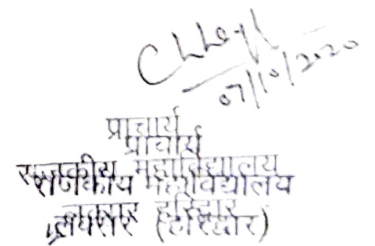 07/10/2020
प्राचार्य
प्राचार्य
राजकीय महाविद्यालय
राजकीय महाविद्यालय
हरिद्वार
(हरिद्वार)